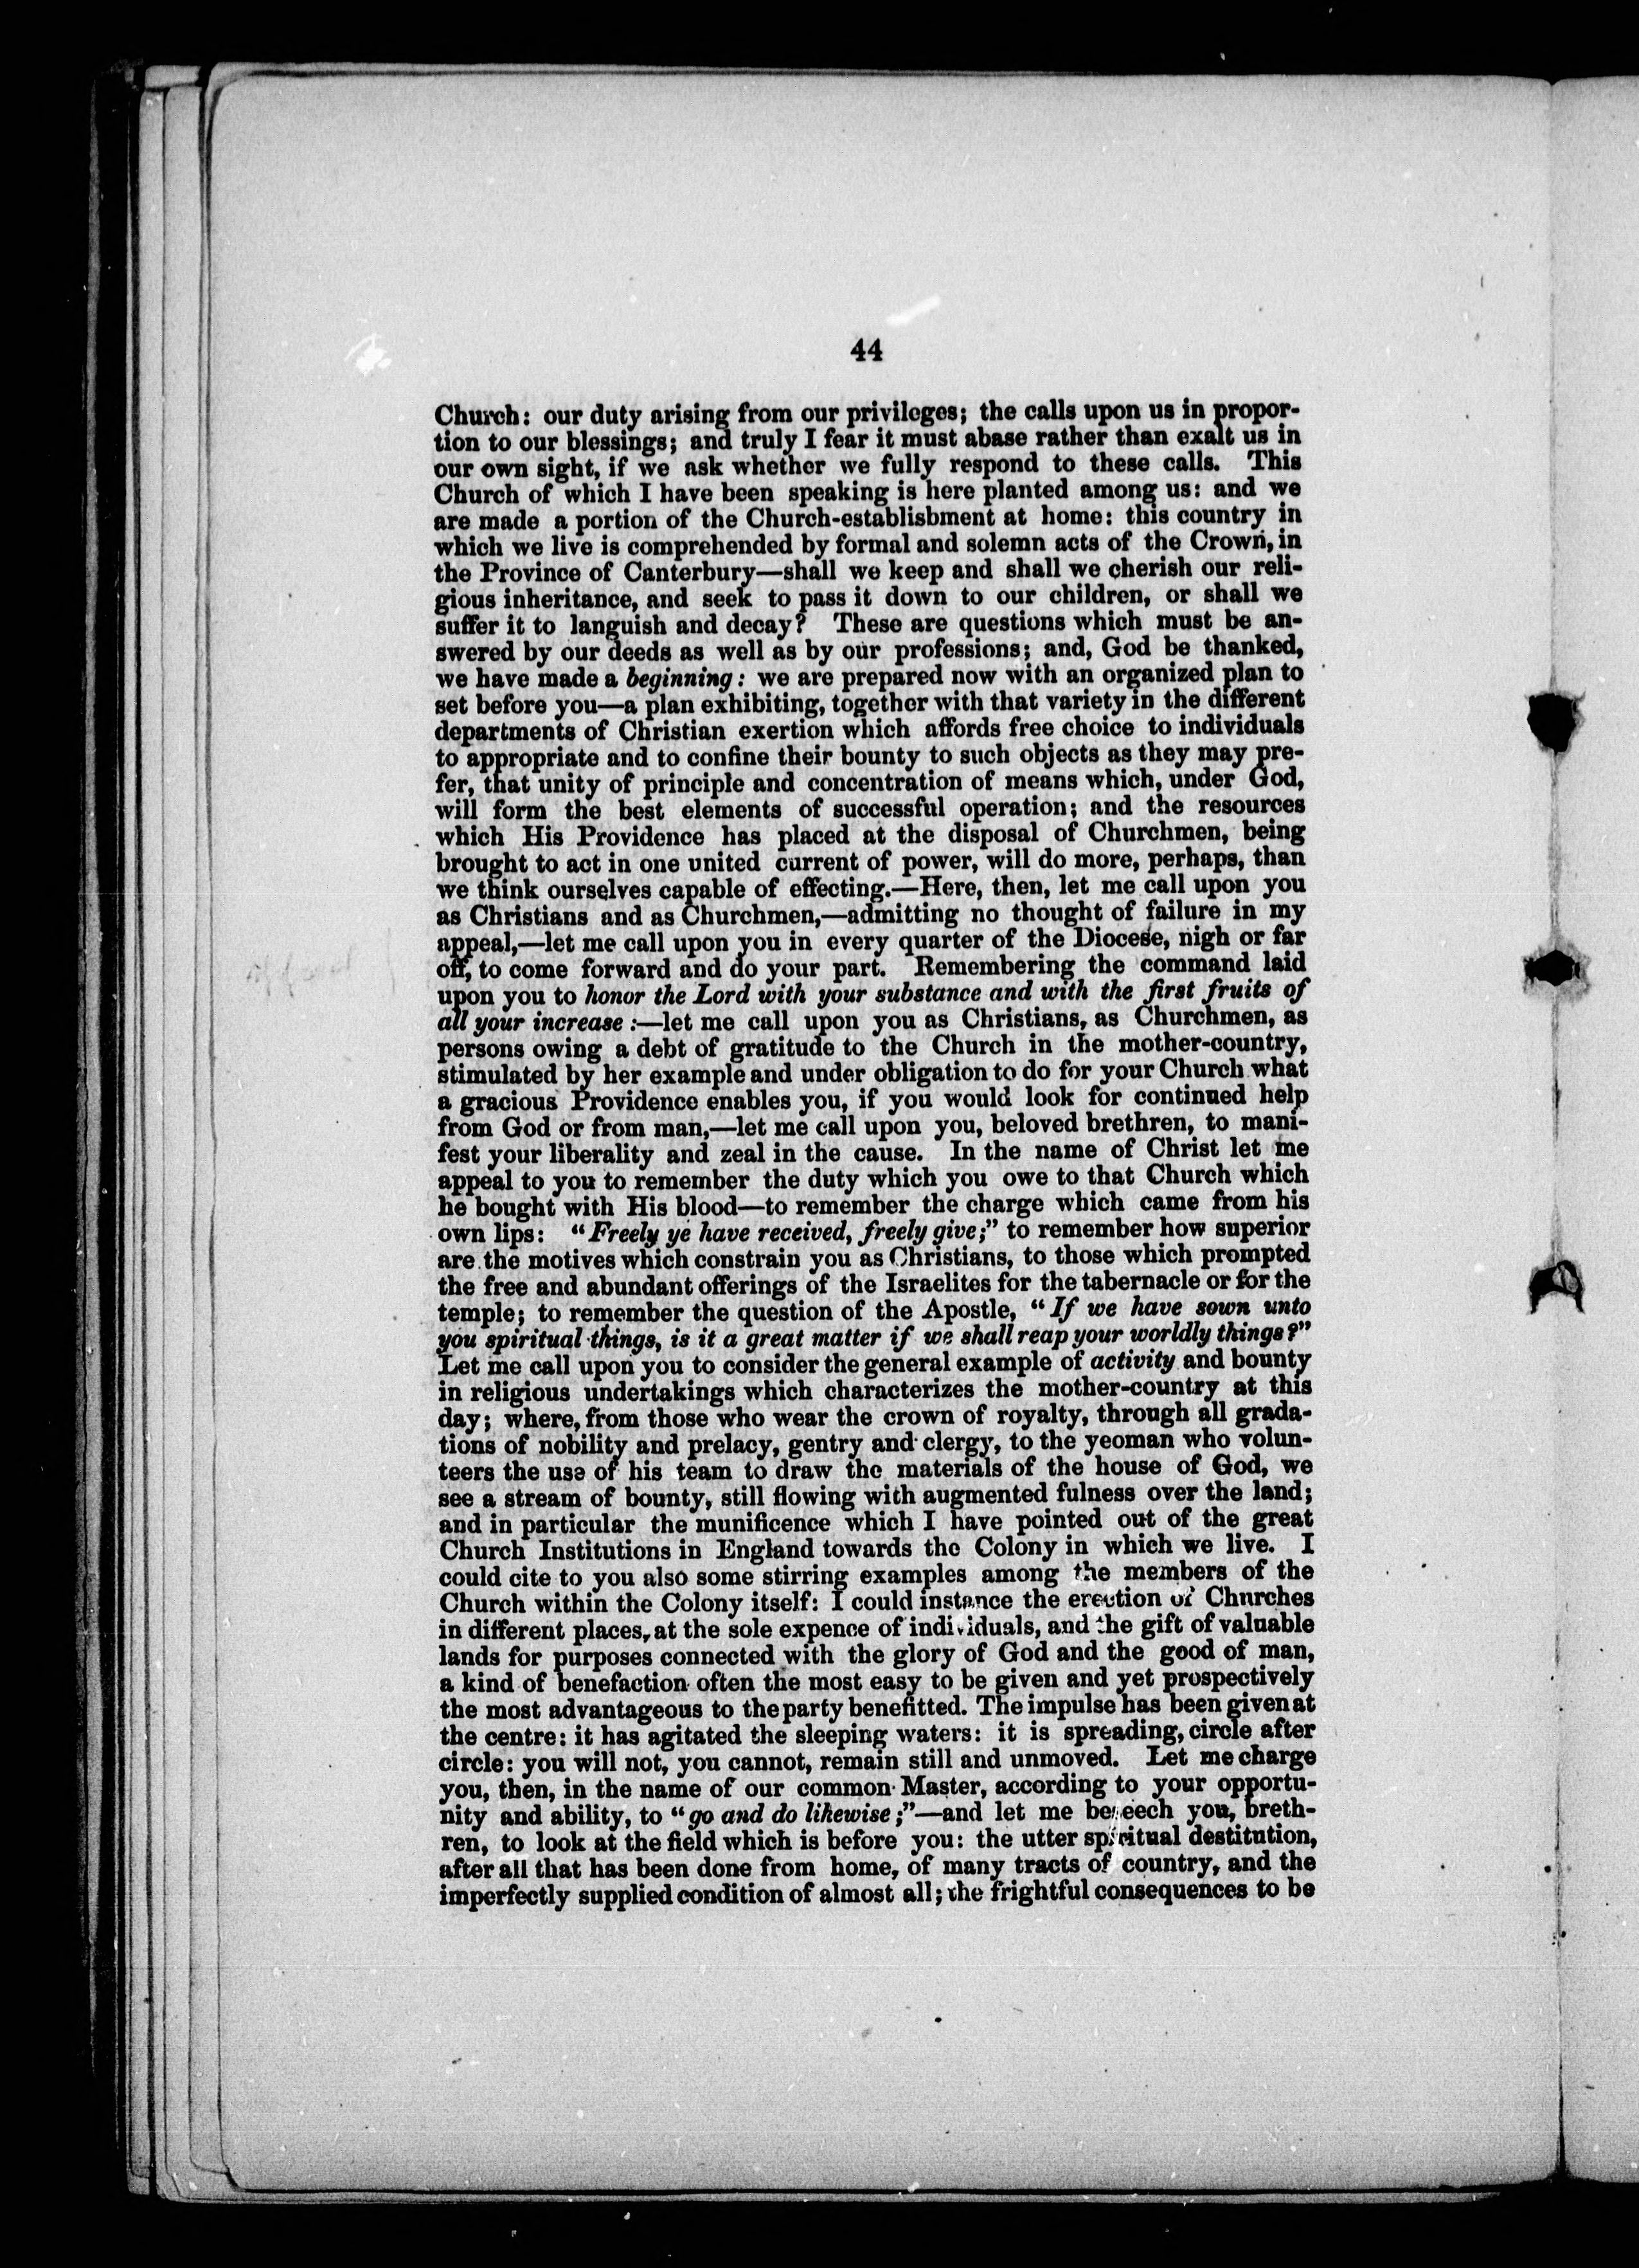 44
Church: our duty arising from our privileges; the calls upon us in propor-
tion to our blessings; and truly I fear it must abase rather than exalt us in
our own sight, if we ask whether we fully respond to these calls. This
Church of which I have been speaking is here planted among us: and we
are made a portion of the Church-establisbment at home: this country in
which we live is comprehended by formal and solemn acts of the Crown, in
the Province of Canterbury—shall we keep and shall we cherish our reli-
gious inheritance, and seek to pass it down to our children, or shall we
suffer it to languish and decay? These are questions which must be an-
swered by our deeds as well as by our professions; and, God be thanked,
we have made a beginning: we are prepared now with an organized plan to
set before you—a plan exhibiting, together with that variety in the different
departments of Christian exertion which affords free choice to individuals
to appropriate and to confine their bounty to such objects as they may pre-
fer, that unity of principle and concentration of means which, under God,
will form the best elements of successful operation; and the resources
which His Providence has placed at the disposal of Churchmen, being
brought to act in one united current of power, will do more, perhaps, than
we think ourselves capable of effecting.—Here, then, let me call upon you
as Christians and as Churchmen,—admitting no thought of failure in my
appeal,—let me call upon you in every quarter of the Diocese, nigh or far
off, to come forward and do your part. Remembering the command laid
upon you to honor the Lord with your substance and with the first fruits of
all your increase:—let me call upon you as Christians, as Churchmen, as
persons owing a debt of gratitude to the Church in the mother-country,
stimulated by her example and under obligation to do for your Church what
a gracious Providence enables you, if you would look for continued help
from God or from man,—let me call upon you, beloved brethren, to mani-
fest your liberality and zeal in the cause. In the name of Christ let me
appeal to you to remember the duty which you owe to that Church which
he bought with His blood—to remember the charge which came from his
own lips: "Freely ye have received, freely give;" to remember how superior
are the motives which constrain you as Christians, to those which prompted
the free and abundant offerings of the Israelites for the tabernacle or for the
temple; to remember the question of the Apostle, "If we have sown unto
you spiritual things, is it a great matter if we shall reap your worldly things?"
Let me call upon you to consider the general example of activity and bounty
in religious undertakings which characterizes the mother-country at this
day; where, from those who wear the crown of royalty, through all grada-
tions of nobility and prelacy, gentry and clergy, to the yeoman who volun-
teers the use of his team to draw the materials of the house of God, we
see a stream of bounty, still flowing with augmented fulness over the land;
and in particular the munificence which I have pointed out of the great
Church Institutions in England towards the Colony in which we live. I
could cite to you also some stirring examples among the members of the
Church within the Colony itself: I could instance the erection of Churches
in different places, at the sole expence of individuals, and the gift of valuable
lands for purposes connected with the glory of God and the good of man,
a kind of benefaction often the most easy to be given and yet prospectively
the most advantageous to the party benefitted. The impulse has been given at
the centre: it has agitated the sleeping waters: it is spreading, circle after
circle: you will not, you cannot, remain still and unmoved. Let me charge
you, then, in the name of our common Master, according to your opportu-
nity and ability, to "go and do likewise;"—and let me beseech you, breth-
ren, to look at the field which is before you: the utter spiritual destitution,
after all that has been done from home, of many tracts of country, and the
imperfectly supplied condition of almost all; the frightful consequences to be